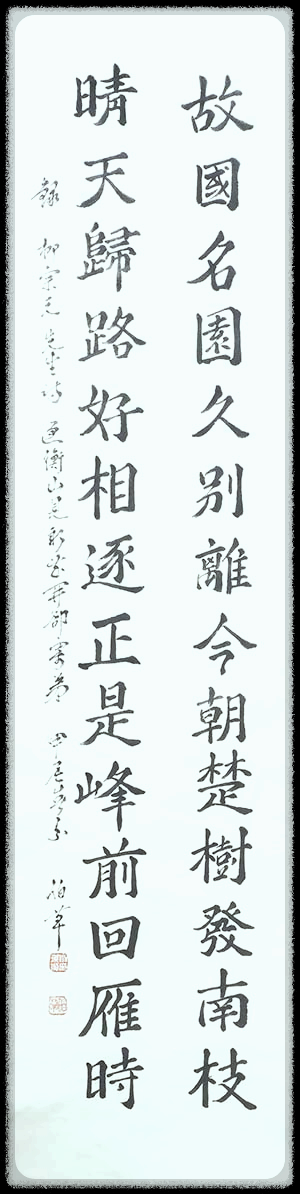 故國名園久別離今朝楚樹發南枝
晴天歸路好相逐正是峰前回雁時
錄 柳宗元先生詩 過衡山見新花開卻寄弟